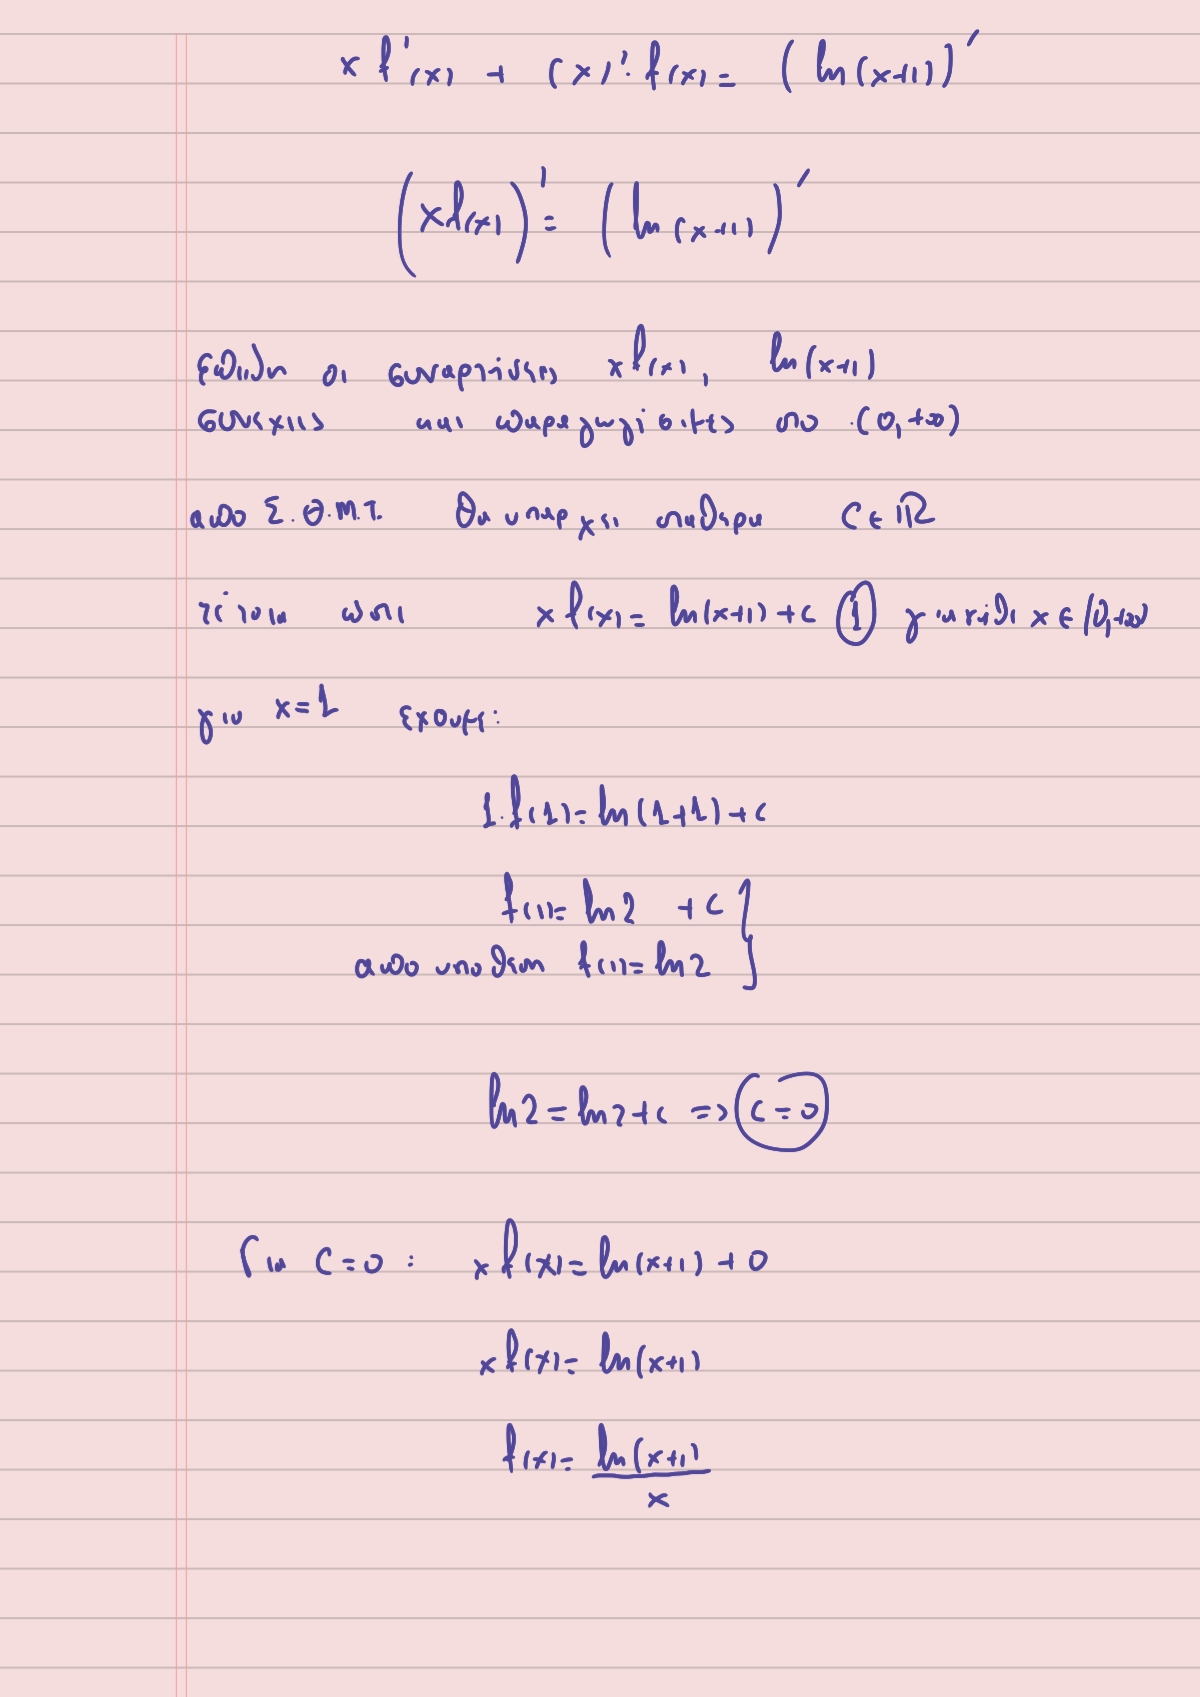 x f'(x) + (x)'· f(x) = (ln(x+1))'
(x f(x))' = (ln(x+1))'
επειδη οι συναρτησεις x f(x), ln(x+1)
συνεχεις και παραγωγισιμες στο (0,+∞)
απο Σ.Θ.Μ.Τ. θα υπαρχει σταθερα C ∈ ℝ
τετοια ωστε x f(x) = ln(x+1) + c ① για καθε x ∈ (0,+∞)
για x=1 εχουμε:
1·f(1) = ln(1+1) + c
f(1) = ln2 + c }
απο υποθεση f(1) = ln2
ln2 = ln2 + c => c = 0
Για C=0 : x f(x) = ln(x+1) + 0
x f(x) = ln(x+1)
f(x) = ln(x+1) / x